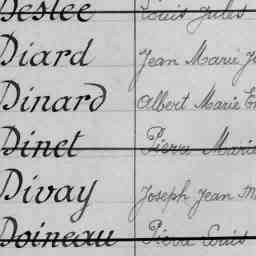 Deslée Louis Jules
Diard Jean Marie
Dinard Albert Marie
Dinet Pierre Marie
Divay Joseph Jean
Doineau Pierre Louis